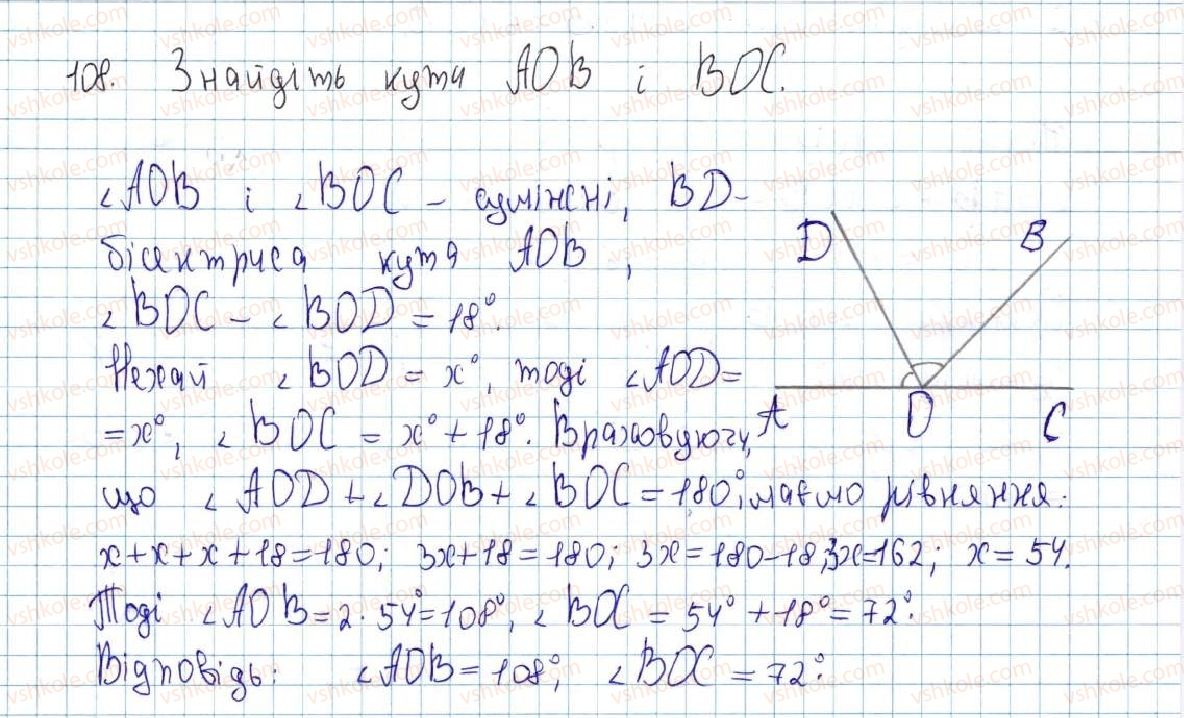 108. Знайдіть кути AOB і BOC.
∠AOB і ∠BOC – суміжні, BD –
бісектриса кута AOB,
∠BOC – ∠BOD = 18°.
Нехай ∠BOD = x°, тоді ∠AOD =
= x°, ∠BOC = x° + 18°. Враховуючи,
що ∠AOD + ∠DOB + ∠BOC = 180°, маємо рівняння:
x + x + x + 18 = 180; 3x + 18 = 180; 3x = 180 – 18; 3x = 162; x = 54.
Тоді ∠AOB = 2 · 54° = 108°, ∠BOC = 54° + 18° = 72°.
Відповідь: ∠AOB = 108°, ∠BOC = 72°.
D B
A O C
vshkole.com